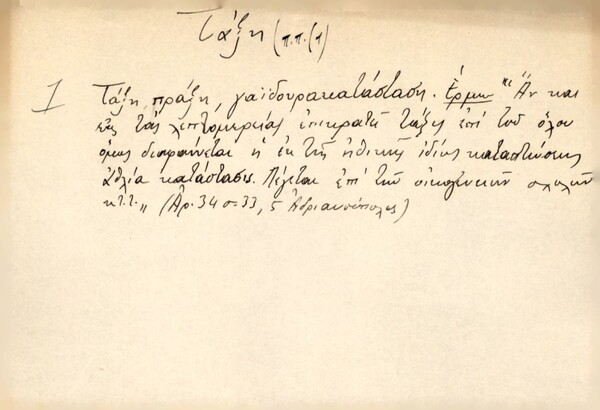 Τάξη (π.π.(1)
1 Τάξη, πράξη, γαϊδουρακατάσταση. Ἑρμ. "Ἄν και
εἰς τάς λεπτομερείας ἐπικρατῇ τάξις ἐπί τοῦ ὅλου
ὅμως διαφαίνεται ἡ ἐκ τῆς ἠθικῆς ἰδίως καταστάσεως
ἀθλία κατάστασις. Λέγεται ἐπί τῶν οἰκογενειῶν σχολῶν
κ.τ.τ.„ (Ἀρ. 34 σ. 33, 5 Ἀδριανούπολις)